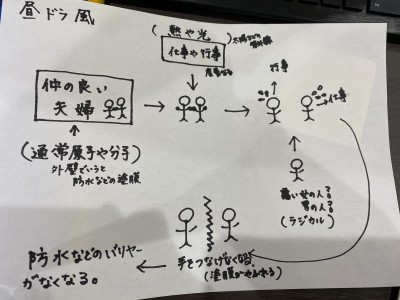 昼ドラ風
(熱や光)
太陽などの
紫外線
仕事や行事
仲の良い
夫婦
行事
仕事
(通常原子や分子)
外壁でいうと
防水などの塗膜
悪い女の人?
男の人?
(ラジカル)
手をつなげなくなる。
(塗膜がやぶれる)
防水などのバリヤー
がなくなる。